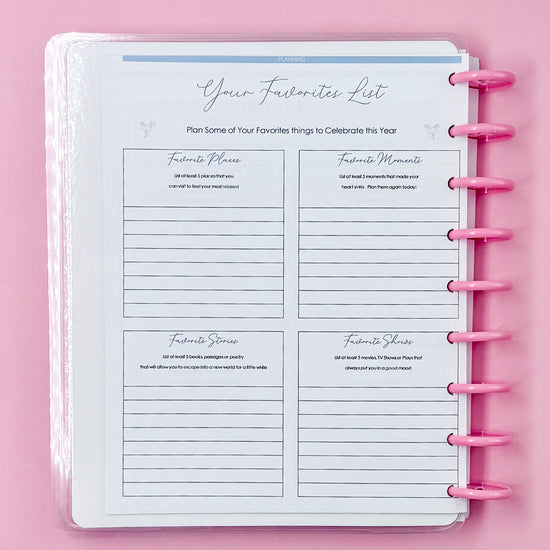 PLANNING
Your Favorites List
Plan Some of Your Favorites things to Celebrate this Year
Favorite Places
List at least 5 places that you
can visit to feel your most relaxed
Favorite Moments
List at least 5 moments that made your
heart smile. Plan them again today!
Favorite Stories
List at least 5 books, passages or poetry
that will allow you to escape into a new world for a little while
Favorite Shows
List at least 5 movies, TV Shows or Plays that
always put you in a good mood